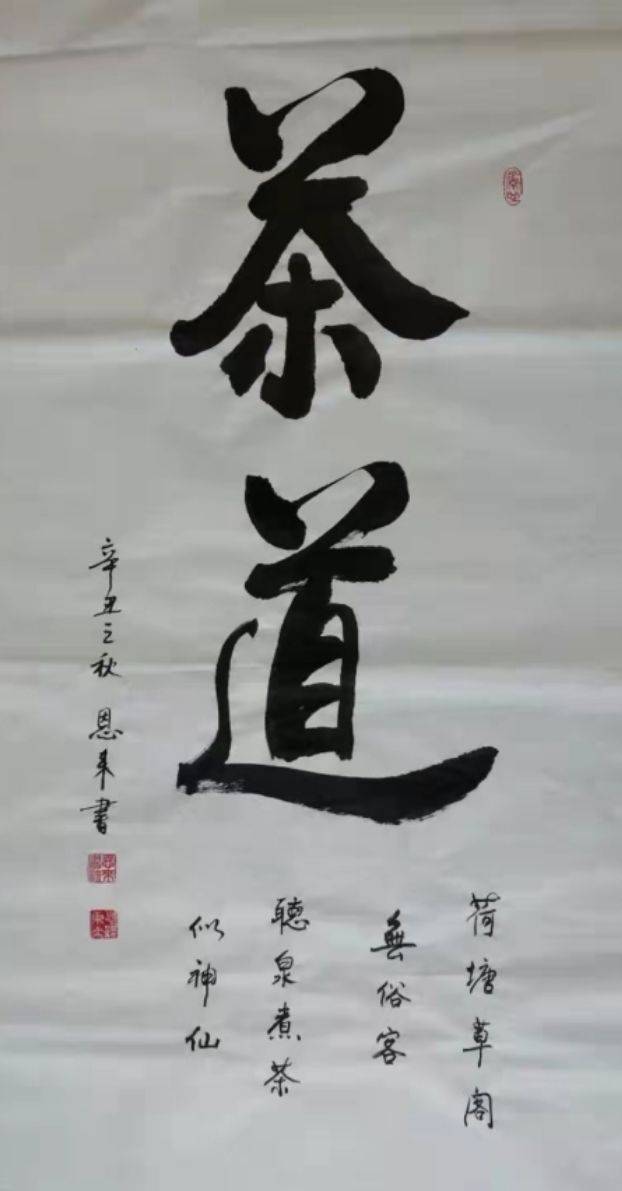 茶道
荷塘草阁
無俗客
聽泉煮茶
似神仙
辛丑之秋 恩来書